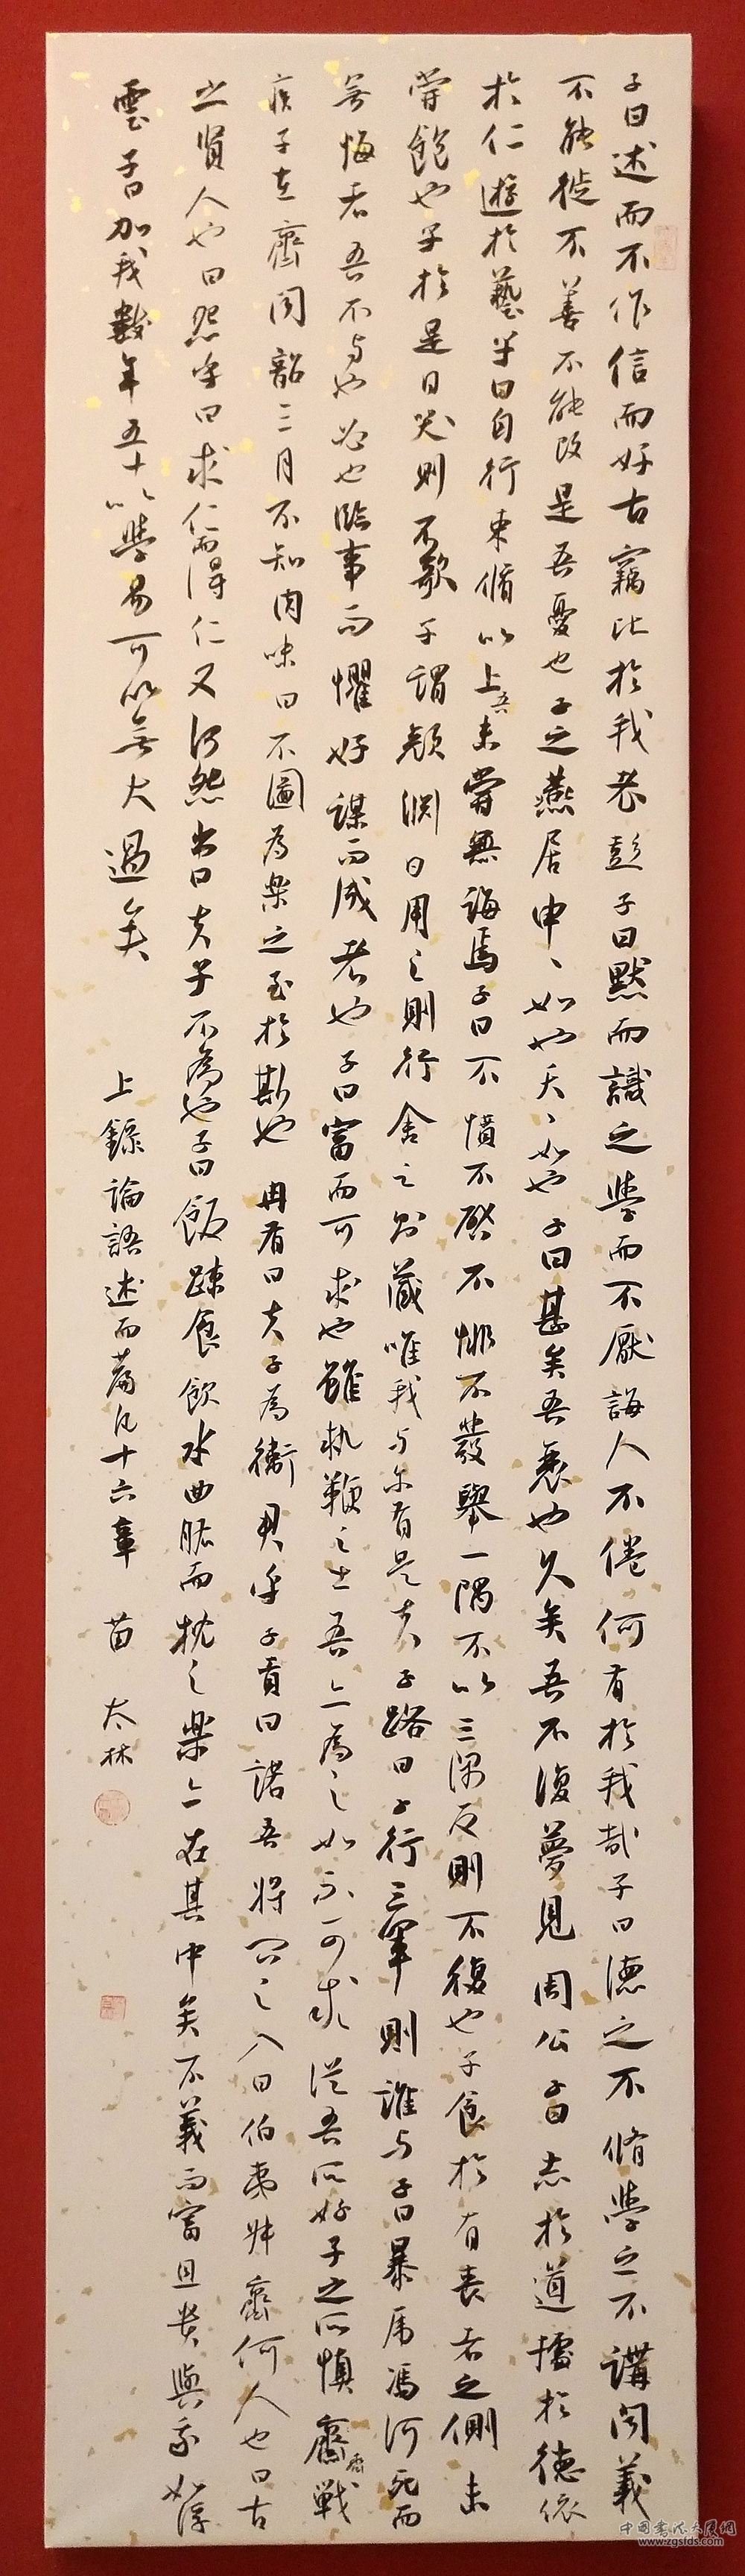 子曰述而不作信而好古竊比於我老彭子曰默而識之學而不厭誨人不倦何有於我哉子曰德之不脩學之不講聞義
不能徙不善不能改是吾憂也子之燕居申〻如也夭〻如也子曰甚矣吾衰也久矣吾不復夢見周公子曰志於道據於德依
於仁遊於藝子曰自行束脩以上吾未嘗無誨焉子曰不憤不啓不悱不發舉一隅不以三隅反則不復也子食於有喪者之側未
嘗飽也子於是日哭則不歌子謂顏淵曰用之則行舍之則藏唯我與爾有是夫子路曰子行三軍則誰與子曰暴虎馮河死而
無悔者吾不與也必也臨事而懼好謀而成者也子曰富而可求也雖執鞭之士吾亦為之如不可求從吾所好子之所慎齋戰
疾子在齊聞韶三月不知肉味曰不圖為樂之至於斯也冉有曰夫子為衛君乎子貢曰諾吾將問之入曰伯夷叔齊何人也曰古
之賢人也曰怨乎曰求仁而得仁又何怨出曰夫子不為也子曰飯疏食飲水曲肱而枕之樂亦在其中矣不義而富且貴與我如浮
雲子曰加我數年五十以學易可以無大過矣
上錄論語述而篇凡十六章 苗太林
中国书法大展网
www.zgsfds.com